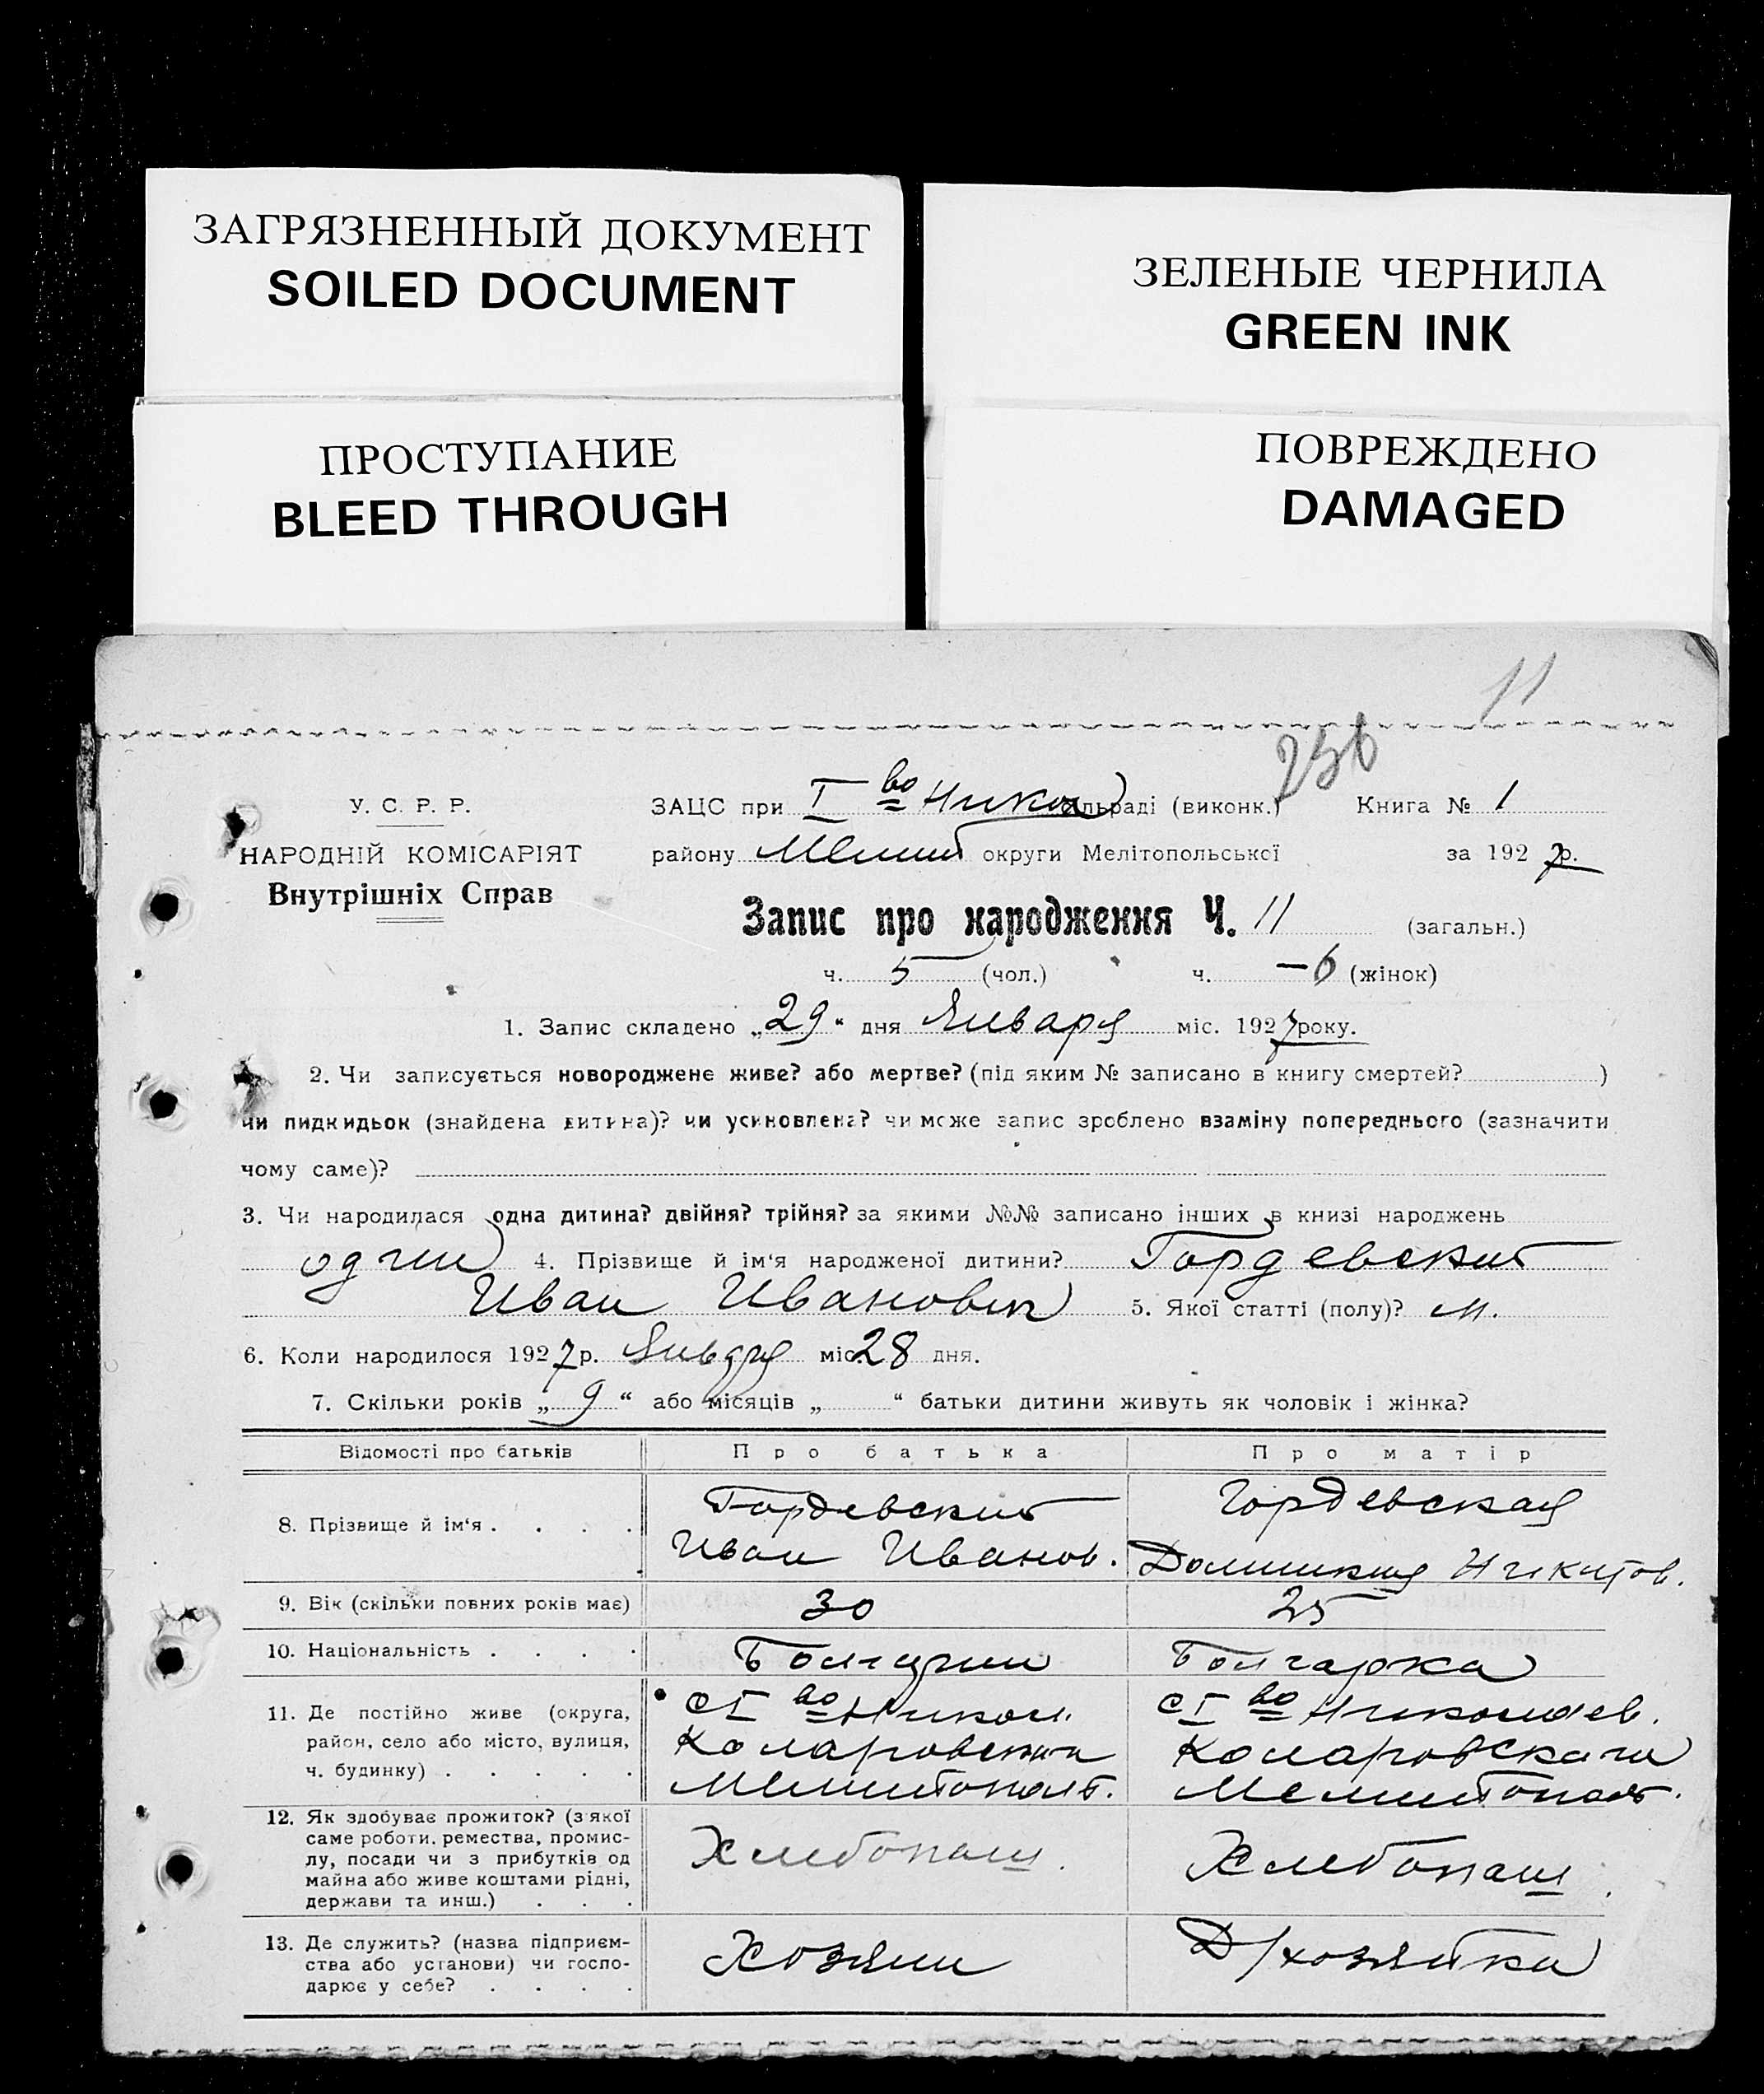 ЗАГРЯЗНЕННЫЙ ДОКУМЕНТ
SOILED DOCUMENT
ЗЕЛЕНЫЕ ЧЕРНИЛА
GREEN INK
ПРОСТУПАНИЕ
BLEED THROUGH
ПОВРЕЖДЕНО
DAMAGED
11
256
У. С. Р. Р.
НАРОДНІЙ КОМІСАРІЯТ
Внутрішніх Справ
ЗАЦС при І во Никол сільраді (виконк.) Книга № 1
району округи Мелітопольської за 1927 р.
Запис про народження Ч. 11 (загальн.)
ч. 5 (чол.) ч. – 6 (жінок)
1. Запис складено „29“ дня Января міс. 1927 року.
2. Чи записується новороджене живе? або мертве? (під яким № записано в книгу смертей? )
чи пидкидьок (знайдена дитина)? чи усиновлена? чи може запис зроблено взаміну попереднього (зазначити
чому саме)?
3. Чи народилася одна дитина? двійня? трійня? за якими №№ записано інших в книзі народжень
один 4. Прізвище й ім'я народженої дитини? Гордевский
Иван Иванович 5. Якої статті (полу)? м.
6. Коли народилося 1927 р. Января міс. 28 дня.
7. Скільки років „9“ або місяців „ “ батьки дитини живуть як чоловік і жінка?
Відомості про батьків Про батька Про матір
8. Прізвище й ім'я . . . . Гордевский Иван Иванов. Гордевская Никитов.
9. Вік (скільки повних років має) 30 25
10. Національність . . . . Болгарин Болгарка
11. Де постійно живе (округа, район, село або місто, вулиця, ч. будинку) . . . . . с І во Никол. Коларовский Мелитополь. с І во Николаев. Коларовскаго Мелитополь.
12. Як здобуває прожиток? (з якої саме роботи, ремества, промислу, посади чи з прибутків од майна або живе коштами рідні, держави та инш.) . . . Хлебопаш. Хлебопаш.
13. Де служить? (назва підприємства або установи) чи господарює у себе? . . . . Хозяин Д/хозяйка